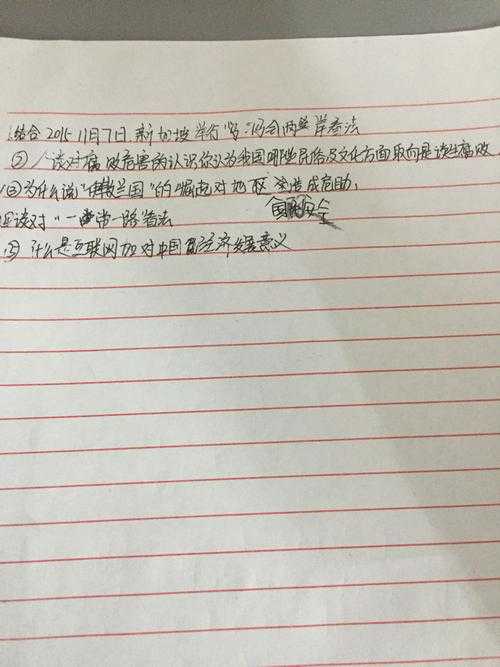 结合2015 11月7日新加坡举行的习马会两岸看法
② 谈对腐败危害的认识你认为我国哪些民俗及文化方面取向是读生腐败
③为什么说"伊斯兰国"的崛起对地区安造成危助,
国际安全
谈对"一带一路看法
⑤ 什么是互联网加对中国经济发展意义